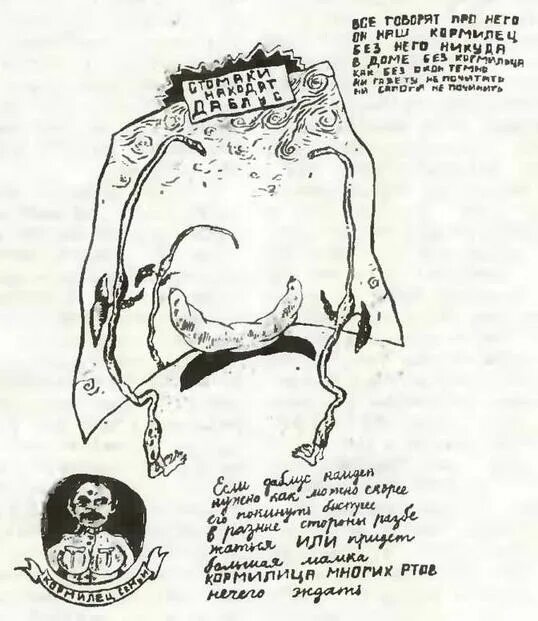 ВСЕ ГОВОРЯТ ПРО НЕГО
ОН НАШ КОРМИЛЕЦ
БЕЗ НЕГО НИКУДА
В ДОМЕ БЕЗ КОРМИЛЬЦА
КАК БЕЗ ОКОН ТЕМНО
НИ ГАЗЕТУ НЕ ПОЧИТАТЬ
НИ САПОГИ НЕ ПОЧИНИТЬ
СТОМАКИ
НАХОДЯТ
ДАБЛУС
Если даблус найден
нужно как можно скорее
его покинуть быстрее
в разные стороны разбе
жаться ИЛИ придет
большая мамка
КОРМИЛИЦА МНОГИХ РТОВ
нечего эндать
КОРМИЛЕЦ СЕМЬИ